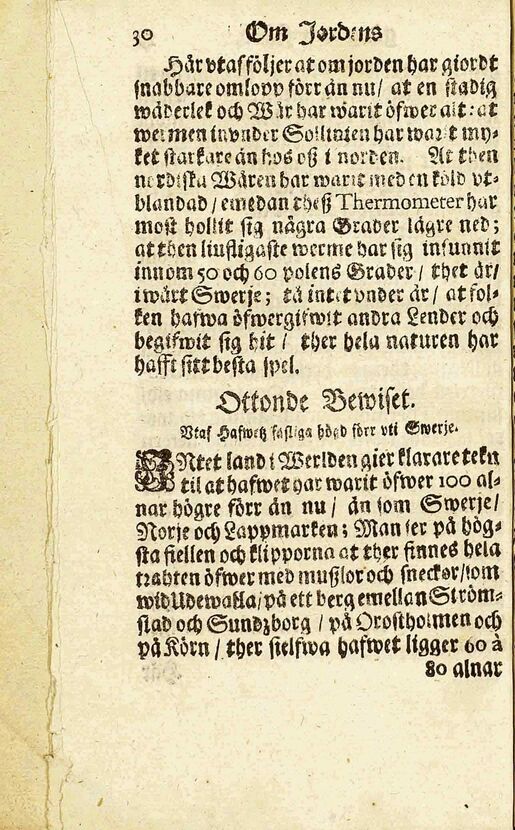 30 Om Jordens
Här vtaf följer at om jorden har giordt
snabbare omlopp förr än nu/ at en stadig
wäderlek och Wår har warit öfwer alt: at
wermen in vnder Sollinien har warit myc-
ket starkare än hos oß i norden. At then
nordiska Wåren har warit med en köld vt-
blandad/ emedan theß Thermometer har
most hollit sig några Grader lägre ned;
at then liufligaste werme har sig infunnit
innom 50 och 60 polens Grader/ thet är/
i wårt Swerje; tå intet vnder är/ at fol-
ken hafwa öfwergifwit andra Lender och
begifwit sig hit/ ther hela naturen har
hafft sitt besta spel.
Ottonde Bewiset.
Vtaf Hafwetz fasliga högd förr vti Swerje.
INtet land i Werlden gier klarare tekn
til at hafwet har warit öfwer 100 al-
nar högre förr än nu/ än som Swerje/
Norje och Lappmarken; Man ser på hög-
sta fiellen och klipporna at ther finnes hela
trahten öfwer med mußlor och sneckor/som
wid Udewalla/på ett berg emellan Ström-
stad och Sundzborg/ på Orostholmen och
på Körn/ ther sielfwa hafwet ligger 60 à
80 alnar